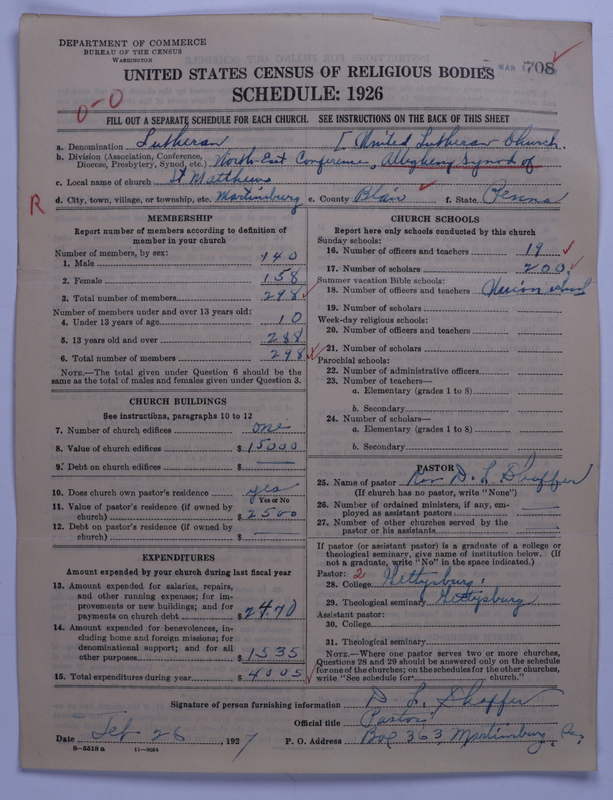 DEPARTMENT OF COMMERCE
BUREAU OF THE CENSUS
WASHINGTON
MAR 708
UNITED STATES CENSUS OF RELIGIOUS BODIES
SCHEDULE: 1926
0-0
FILL OUT A SEPARATE SCHEDULE FOR EACH CHURCH. SEE INSTRUCTIONS ON THE BACK OF THIS SHEET
a. Denomination Lutheran [United Lutheran Church.
b. Division (Association, Conference, Diocese, Presbytery, Synod, etc.) North-East Conference, Allegheny Synod of
c. Local name of church St Matthews
R
d. City, town, village, or township, etc. Martinsburg e. County Blair f. State Penna
MEMBERSHIP
Report number of members according to definition of
member in your church
Number of members, by sex:
1. Male 140
2. Female 158
3. Total number of members 298
Number of members under and over 13 years old:
4. Under 13 years of age 10
5. 13 years old and over 288
6. Total number of members 298
NOTE.—The total given under Question 6 should be
same as the total of males and females given under Question 3.
CHURCH BUILDINGS
See instructions, paragraphs 10 to 12
7. Number of church edifices one
8. Value of church edifices $ 15000
9. Debt on church edifices $ ——
10. Does church own pastor's residence yes
Yes or No
11. Value of pastor's residence (if owned by
church) $ 2500
12. Debt on pastor's residence (if owned by
church) $ ——
EXPENDITURES
Amount expended by your church during last fiscal year
13. Amount expended for salaries, repairs,
and other running expenses; for im-
provements or new buildings; and for
payments on church debt $ 2470
14. Amount expended for benevolences, in-
cluding home and foreign missions; for
denominational support; and for all
other purposes $ 1535
15. Total expenditures during year $ 4005
CHURCH SCHOOLS
Report here only schools conducted by this church
Sunday schools:
16. Number of officers and teachers 19
17. Number of scholars 200
Summer vacation Bible schools:
18. Number of officers and teachers
19. Number of scholars
Week-day religious schools:
20. Number of officers and teachers
21. Number of scholars
Parochial schools:
22. Number of administrative officers
23. Number of teachers—
a. Elementary (grades 1 to 8)
b. Secondary
24. Number of scholars—
a. Elementary (grades 1 to 8)
b. Secondary
PASTOR
25. Name of pastor Rev D. L. Shaffer
(If church has no pastor, write "None")
26. Number of ordained ministers, if any, em-
ployed as assistant pastors ——
27. Number of other churches served by the
pastor or his assistants ——
If pastor (or assistant pastor) is a graduate of a college or
theological seminary, give name of institution below. (If
not a graduate, write "No" in the space indicated.)
Pastor: 2
28. College Gettysburg
29. Theological seminary Gettysburg
Assistant pastor:
30. College
31. Theological seminary
NOTE.—Where one pastor serves two or more churches,
Questions 28 and 29 should be answered only on the schedule
for one of the churches; on the schedules for the other churches,
write "See schedule for church."
Signature of person furnishing information D. L. Shaffer
Official title Pastor
Date Feb 26, 1927 P. O. Address Box 363, Martinsburg, Pa.
8—5518 a 11—9054